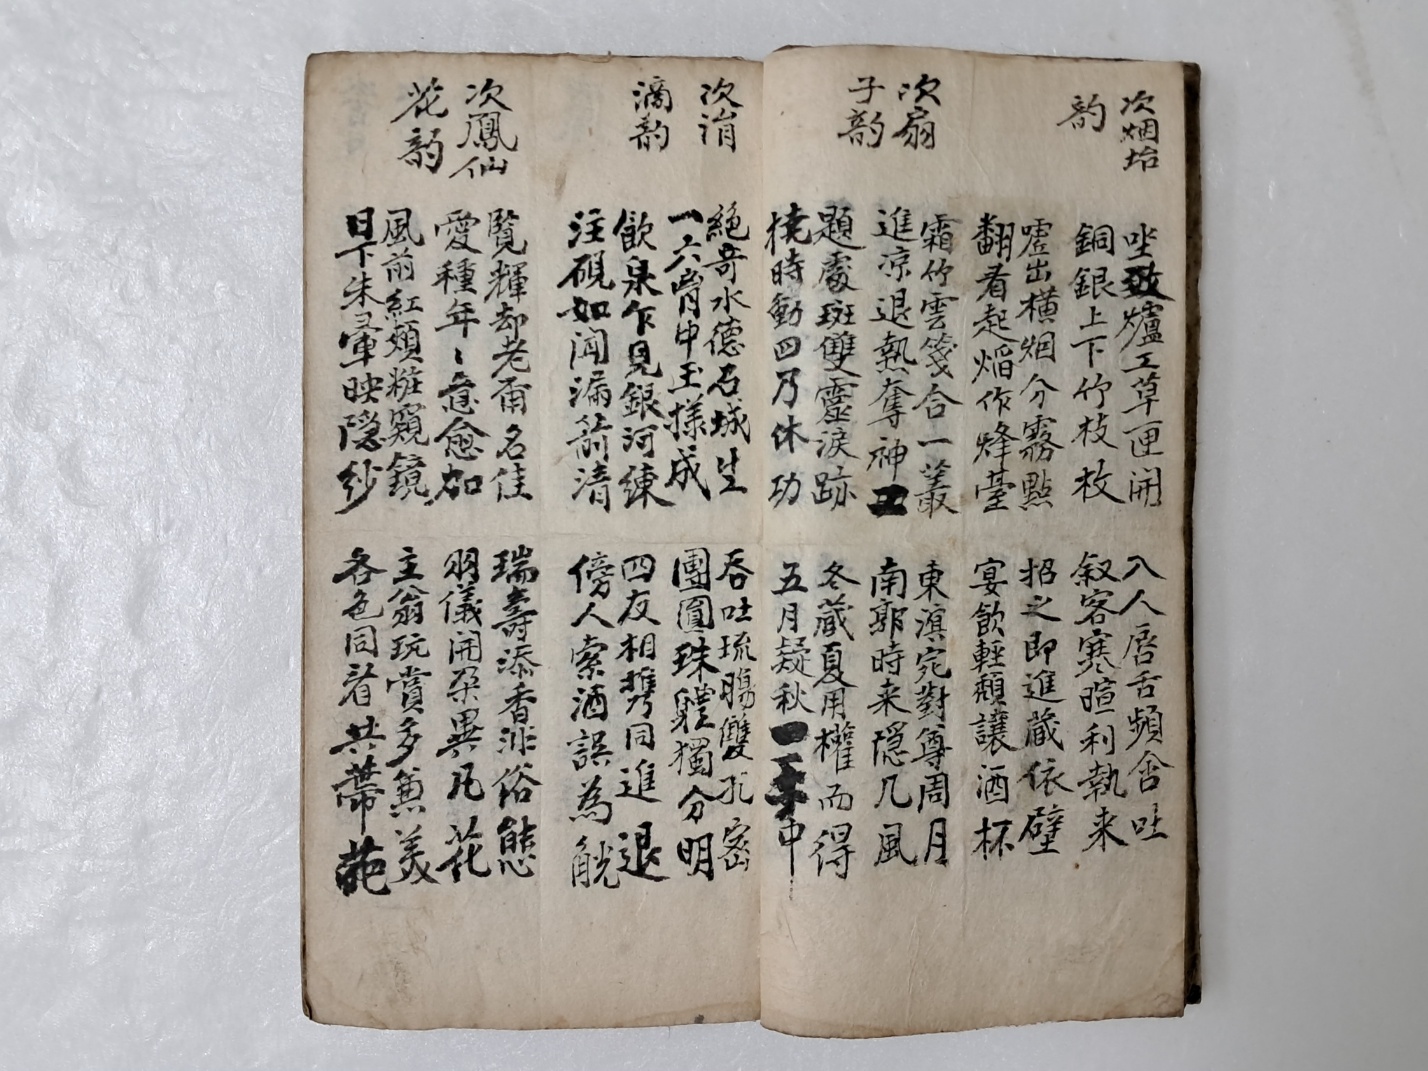 次烟坮
韵
坐致爐工草匣開
入人唇舌頻含吐
銅銀上下竹枝枚
叙客寒暄利執来
嘘出横烟分霧點
招之即進蔵依壁
翻看起焰作烽臺
宴飲輕頽讓酒杯
次扇
子韵
霜竹雲箋合一叢
東溟宛對尊周月
進凉退熱奪神
南郭時来隠几風
題處斑雙靈淚跡
冬蔵夏用權而得
撓時動四乃休功
五月凝秋一中
次涓
滴韵
絕奇水德石城生
吞吐琉腸雙孔密
一六胷中玉様成
團圓珠軆獨分明
飲泉乍見銀河練
四友相携同進退
注硯如聞漏箭清
傍人索酒誤為觥
次鳳仙
花韵
覧輝却老甬名佳
瑞壽添香非俗態
愛種年〻意愈加
羽儀開朶異凡花
風前紅頰粧窺鏡
主翁玩賞多兼美
日下朱暈映隠紗
各色同看共蔕葩